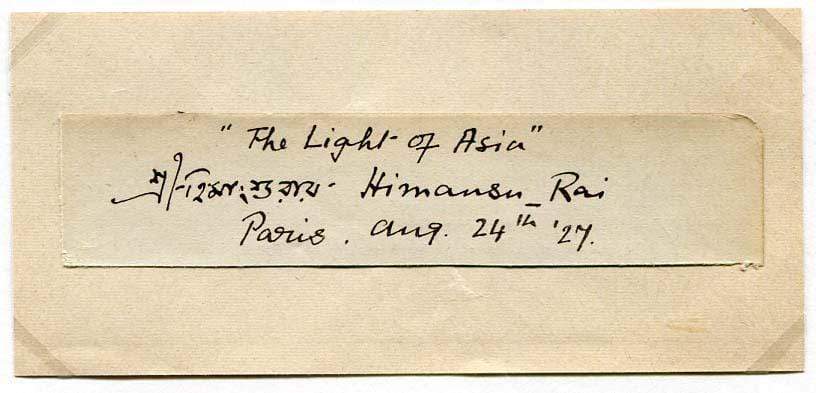 "The Light of Asia"
শ্রীহিমাংশু রায় Himansu Rai
Paris. Aug. 24th '27.